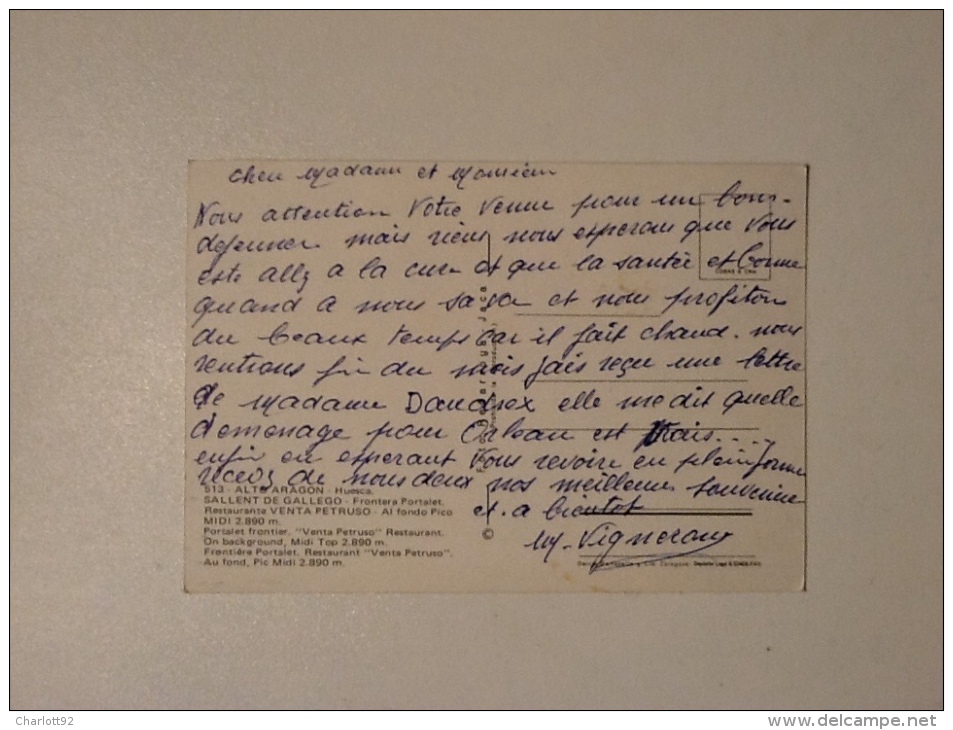 cher Madame et Monsieur
Nous attention Votre Venue pour un bons-
dejeuner mais rien nous esperons que Vous
ete allz a la cure et que la santée et bonne
quand a nous sa va et nous profiton
du beaux temps car il fait chaud. nous
rentrons fin du mois jais reçu une lettre
de Madame Dandrex elle me dit quelle
demenage pour Orlean est Mais....
enfin en esperant Vous revoire en plein forme
recevez de nous deux nos meilleure souvenire
et a bientot
Vigneron
513 - ALTO ARAGON - Huesca.
SALLENT DE GALLEGO - Frontera Portalet.
Restaurante VENTA PETRUSO - Al fondo Pico
MIDI 2.890 m.
Portalet frontier. "Venta Petruso" Restaurant.
On background, Midi Top 2.890 m.
Frontière Portalet. Restaurant "Venta Petruso".
Au fond, Pic Midi 2.890 m.
©
Charlott92
www.delcampe.net